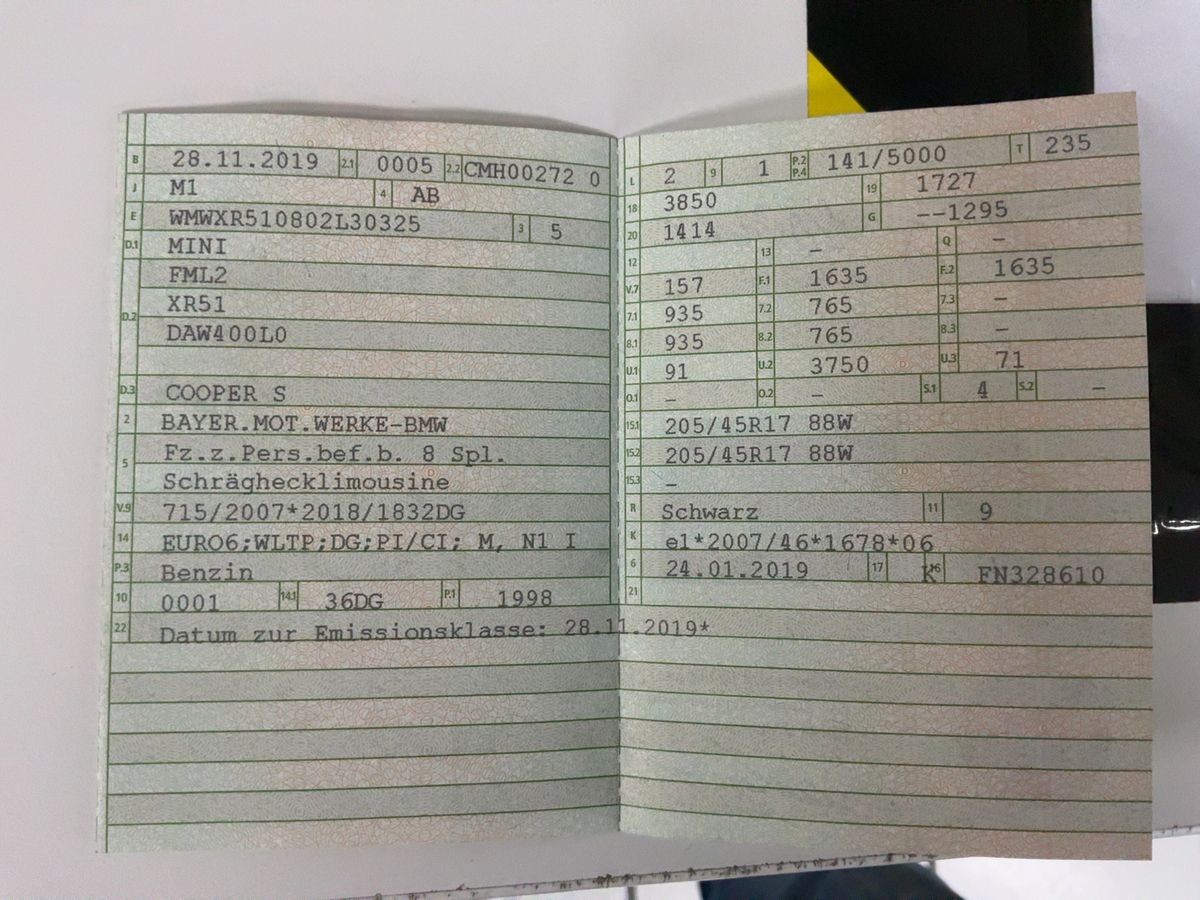 B 28.11.2019 2.1 0005 2.2 CMH00272 0
J M1 4 AB
E WMWXR510802L30325 3 5
D.1 MINI
FML2
D.2 XR51
DAW400L0
D.3 COOPER S
2 BAYER.MOT.WERKE-BMW
5 Fz.z.Pers.bef.b. 8 Spl.
Schräghecklimousine
V.9 715/2007*2018/1832DG
14 EURO6;WLTP;DG;PI/CI; M, N1 I
P.3 Benzin
10 0001 14.1 36DG P.1 1998
22 Datum zur Emissionsklasse: 28.11.2019*
L 2 9 1 P.2 P.4 141/5000 T 235
18 3850 19 1727
20 1414 G --1295
12 13 – Q –
V.7 157 F.1 1635 F.2 1635
7.1 935 7.2 765 7.3 –
8.1 935 8.2 765 8.3 –
U.1 91 U.2 3750 U.3 71
O.1 – O.2 – S.1 4 S.2 –
15.1 205/45R17 88W
15.2 205/45R17 88W
15.3 –
R Schwarz 11 9
K e1*2007/46*1678*06
6 24.01.2019 17 K 16 FN328610
21